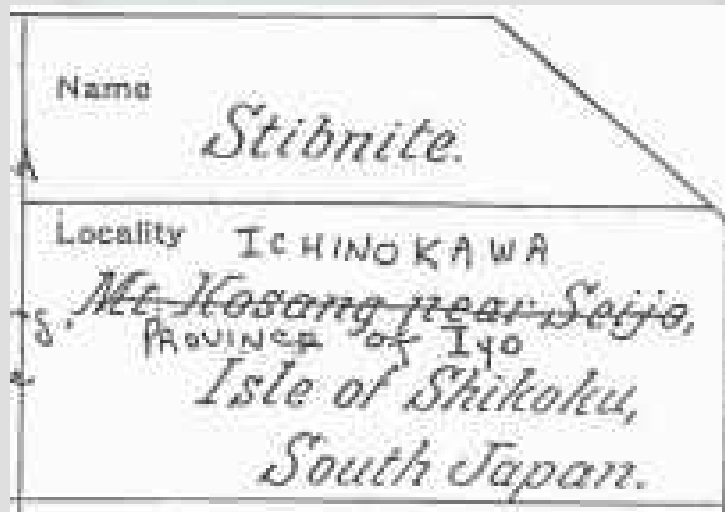 Name
Stibnite.
Locality
ICHINOKAWA
Mt Kosang near Seijo,
PROVINCE of Iyo
Isle of Shikoku,
South Japan.